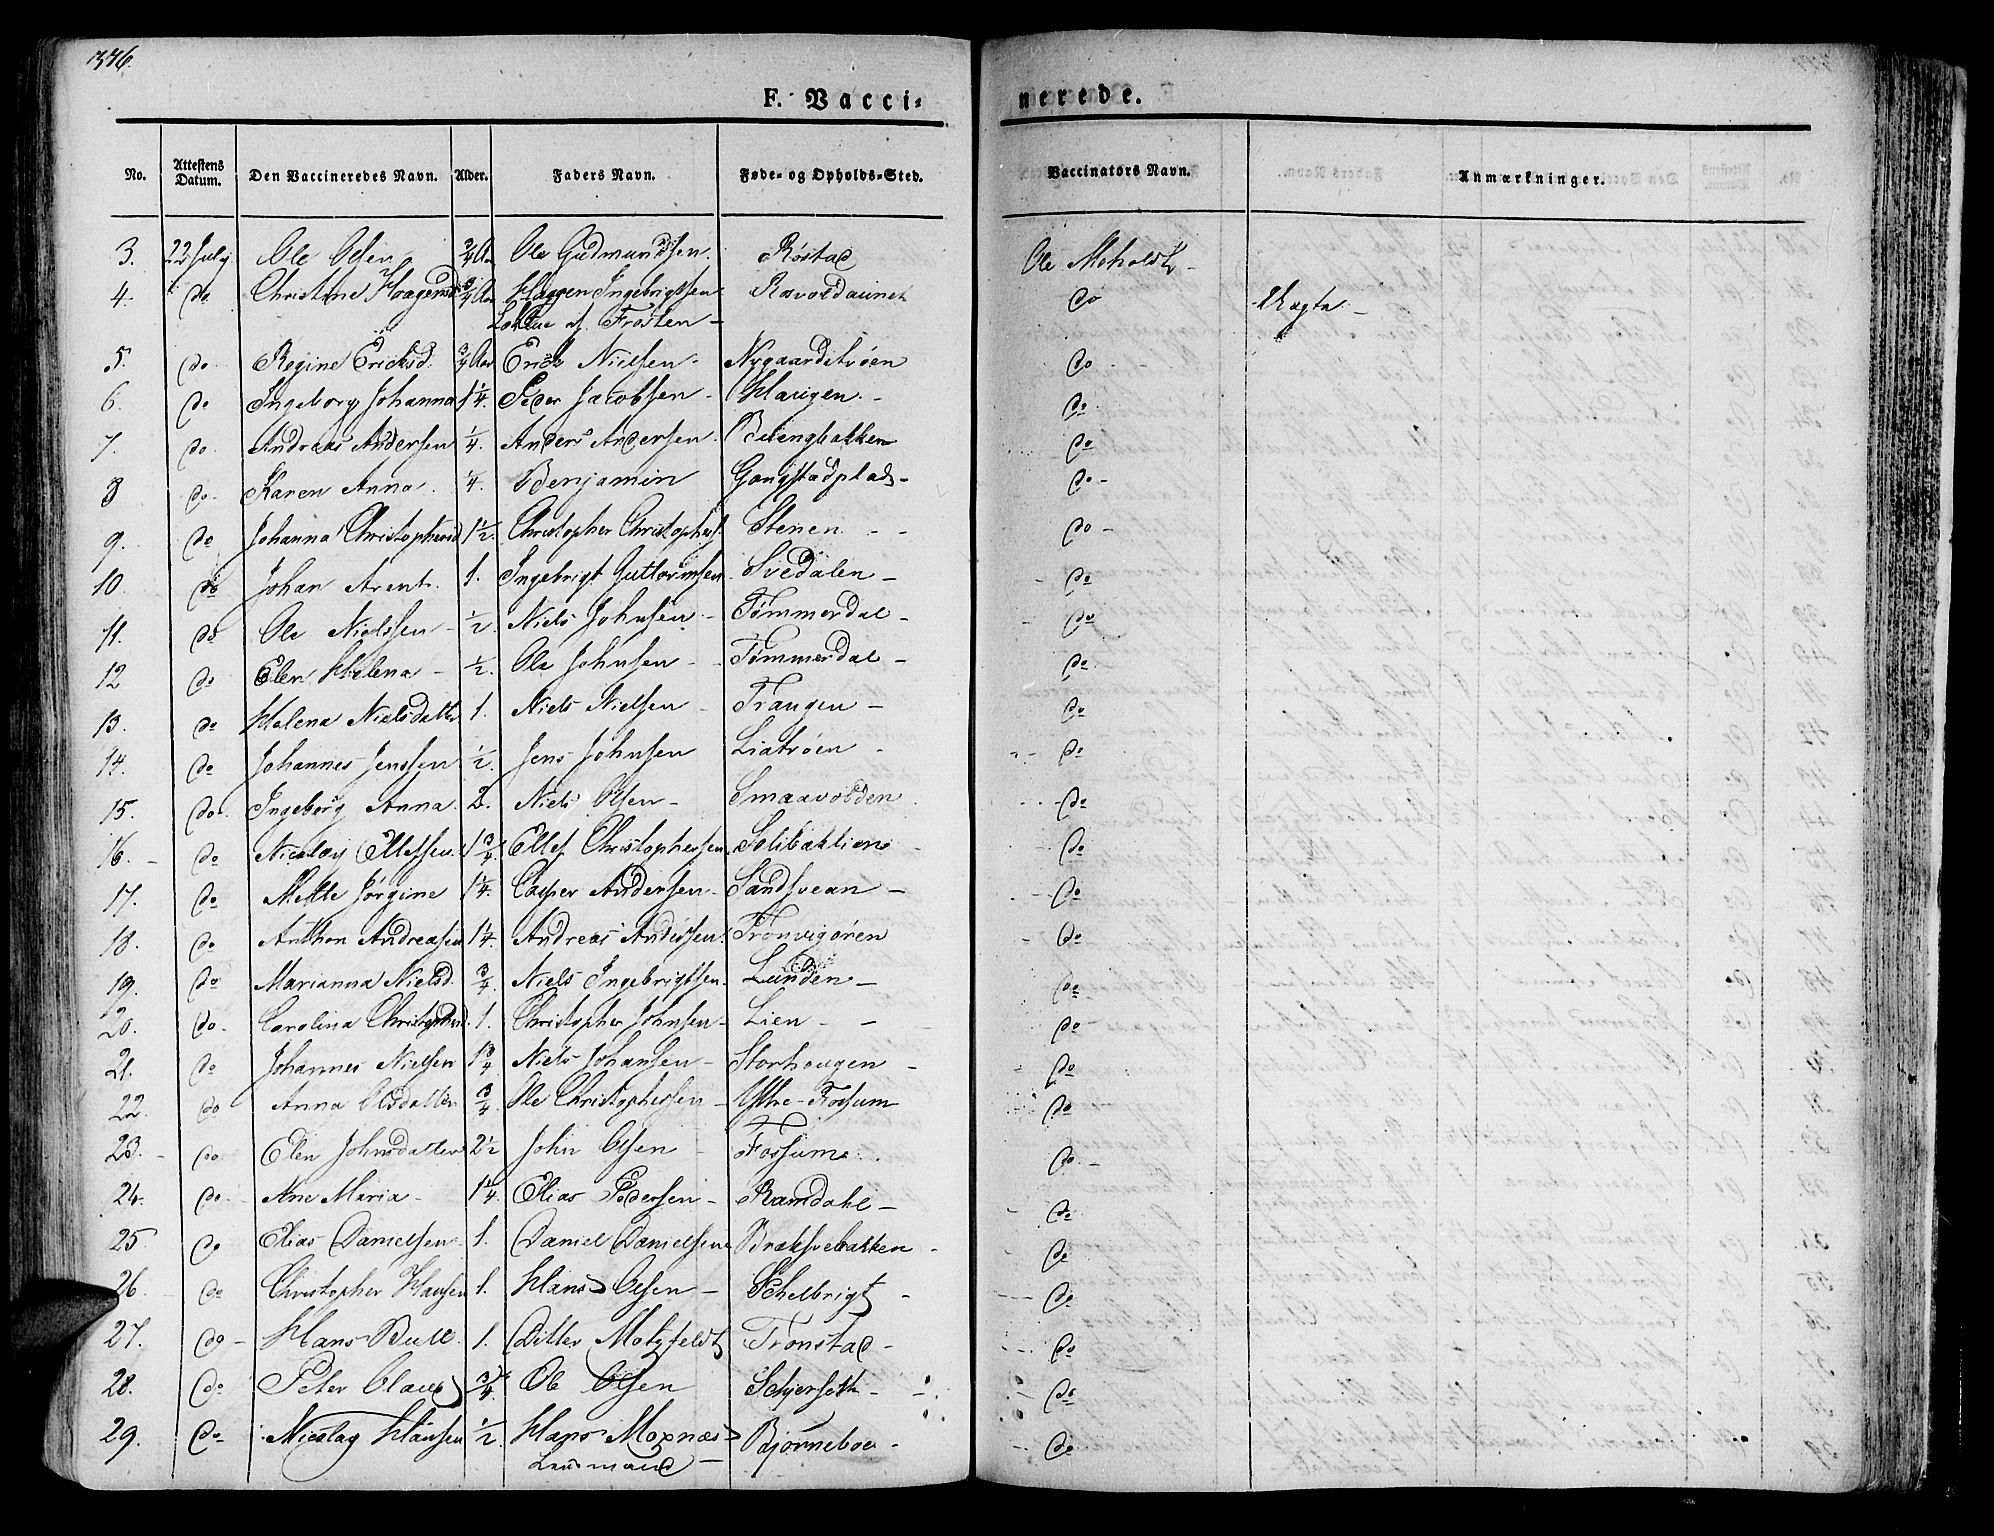 376.
F. Vacci-
nerede.
No. Attestens Datum. Den Vaccineredes Navn. Alder. Faders Navn. Føde- og Opholds-Sted. Vaccinators Navn. Anmærkninger.
3. 22 July Ole Olsen 3/4 Aar Ole Gudmundsen. Røstad Ole Meholdt
4. do Christine Haagensd 3/4 Aar Haagen Ingebrigtsen Ravoldaunet do Uægta.
af Frosten
5. do Regine Ericksd. 3/4 Aar Erick Nielsen Nygaardstrøen do
6. do Ingeborg Johanna 1 1/4. Peder Jacobsen Haugen do
7. do. Andreas Andersen 1/4. Anders Andersen do
8 do. Karen Anna. 1/4. Benjamin Gangstadplads do
9. do Johanna Christophersd 1 1/2. Christopher Christophers. Stenen do
10. do Johan Arent. 1. Ingebrigt Guttormsen Svedalen do
11. do Ole Nielssen 1/2. Niels Johnsen Tømmerdal do
12 do Elen Helena 1/2. Ole Johnsen Tømmerdal do
13. do Helena Nielsdatter 1. Niels Nielsen Trangen do
14. do Johannes Jenssen 1/2. Jens Johnsen Liatrøen do
15. do. Ingeborg Anna. 2. Niels Olsen Smaavolden do
16. do Nicolay Ellefsen. 1 3/4 Ellef Christophersen do
17. do Mette Jørgine 1 1/4. Casper Andersen Sandsvean do
18. do Anthon Andreasen 1 1/4. Andreas Anderssen. Trønvigøren do
19. do Marianna Nielsd. 3/4. Niels Ingebrigtsen. Lunden do
20. do. Carolina Christophersd. 1. Christopher Johnsen Lien do
21. do Johannes Nielsen 1 3/4 Niels Johansen Storhougen do
22. do Anna Olsdatter 3/4. Ole Christophersen Ystre-Fossum do
23. do. Elen Johnsdatter 2 1/2 John Olsen Fossum do.
24. do. Ane Maria 1 1/4. Elias Pedersen Ramdahl do
25 do Elias Danielsen. 1. Daniel Danielsen do
26. do Christopher Hansen 1. Hans Olsen Schelbrigt do
27. do Hans Bull 1. Ditlev Motzfeldt Tronstad do
28. do Peter Claus 3/4. Ole Olsen do
29. do Nicolay Hansen 1/2. Hans Moxnæs Bjørneboe do
Lensmand